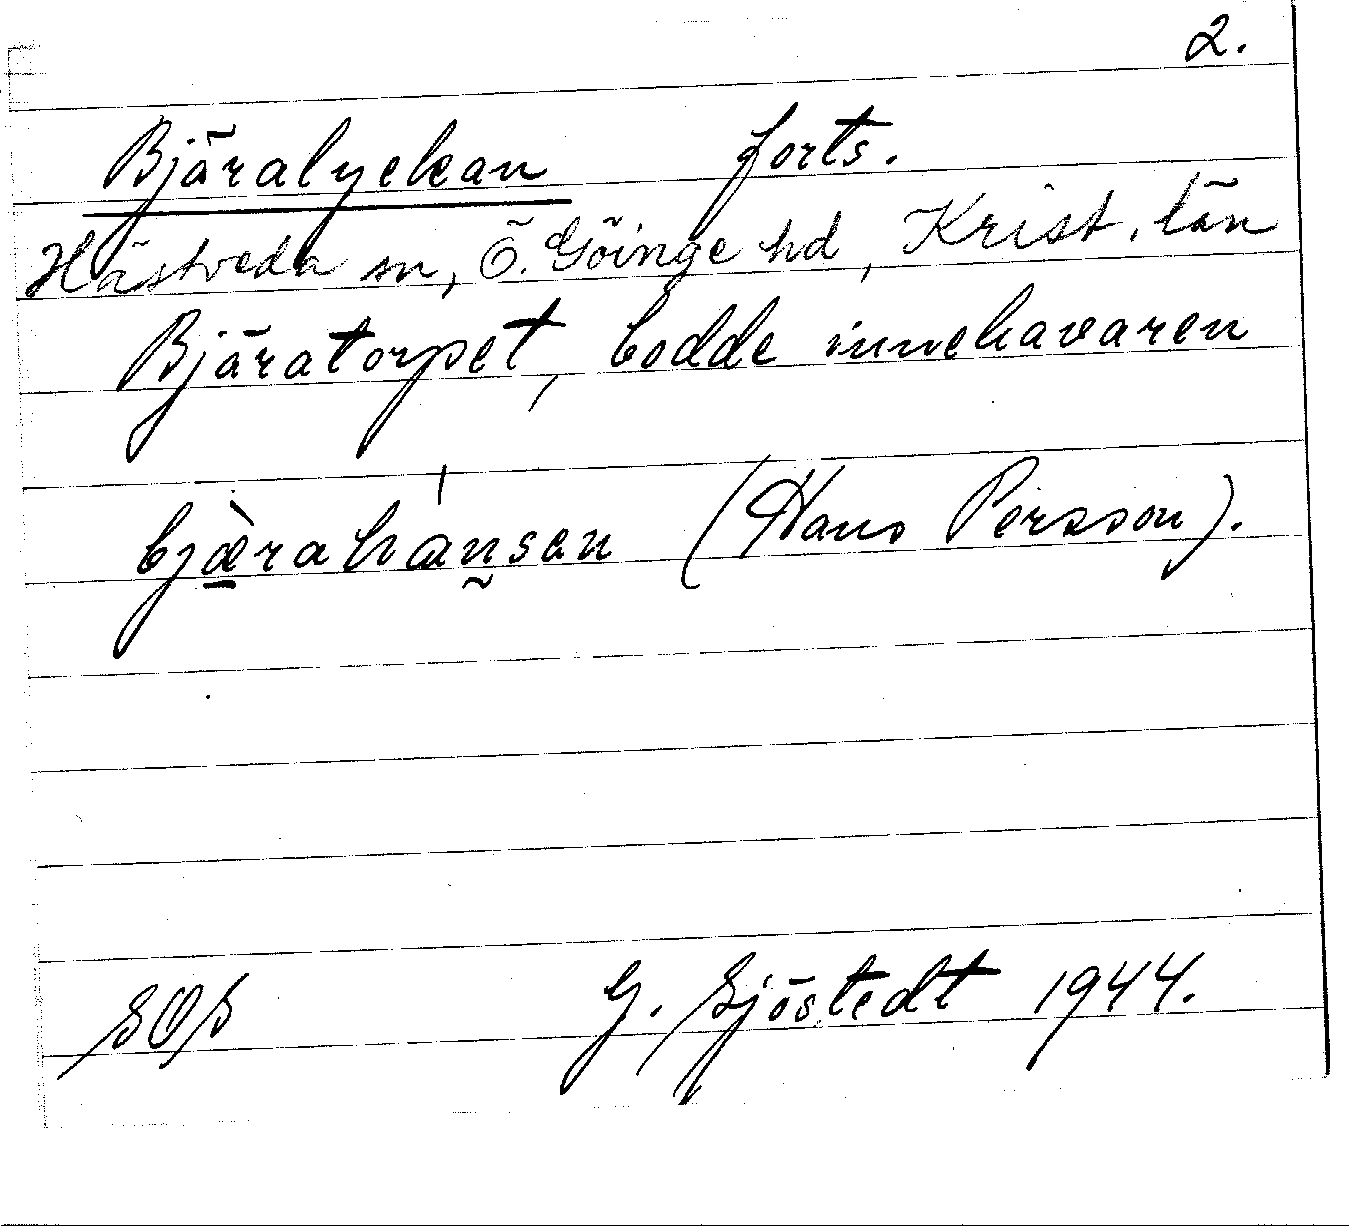 2.
Bjäralyckan forts.
Hästveda sn, Ö. Göinge hd, Krist. län
Bjäratorpet, bodde innehavaren
bjæ̀rahánsen (Hans Persson).
SOS G. Sjöstedt 1944.